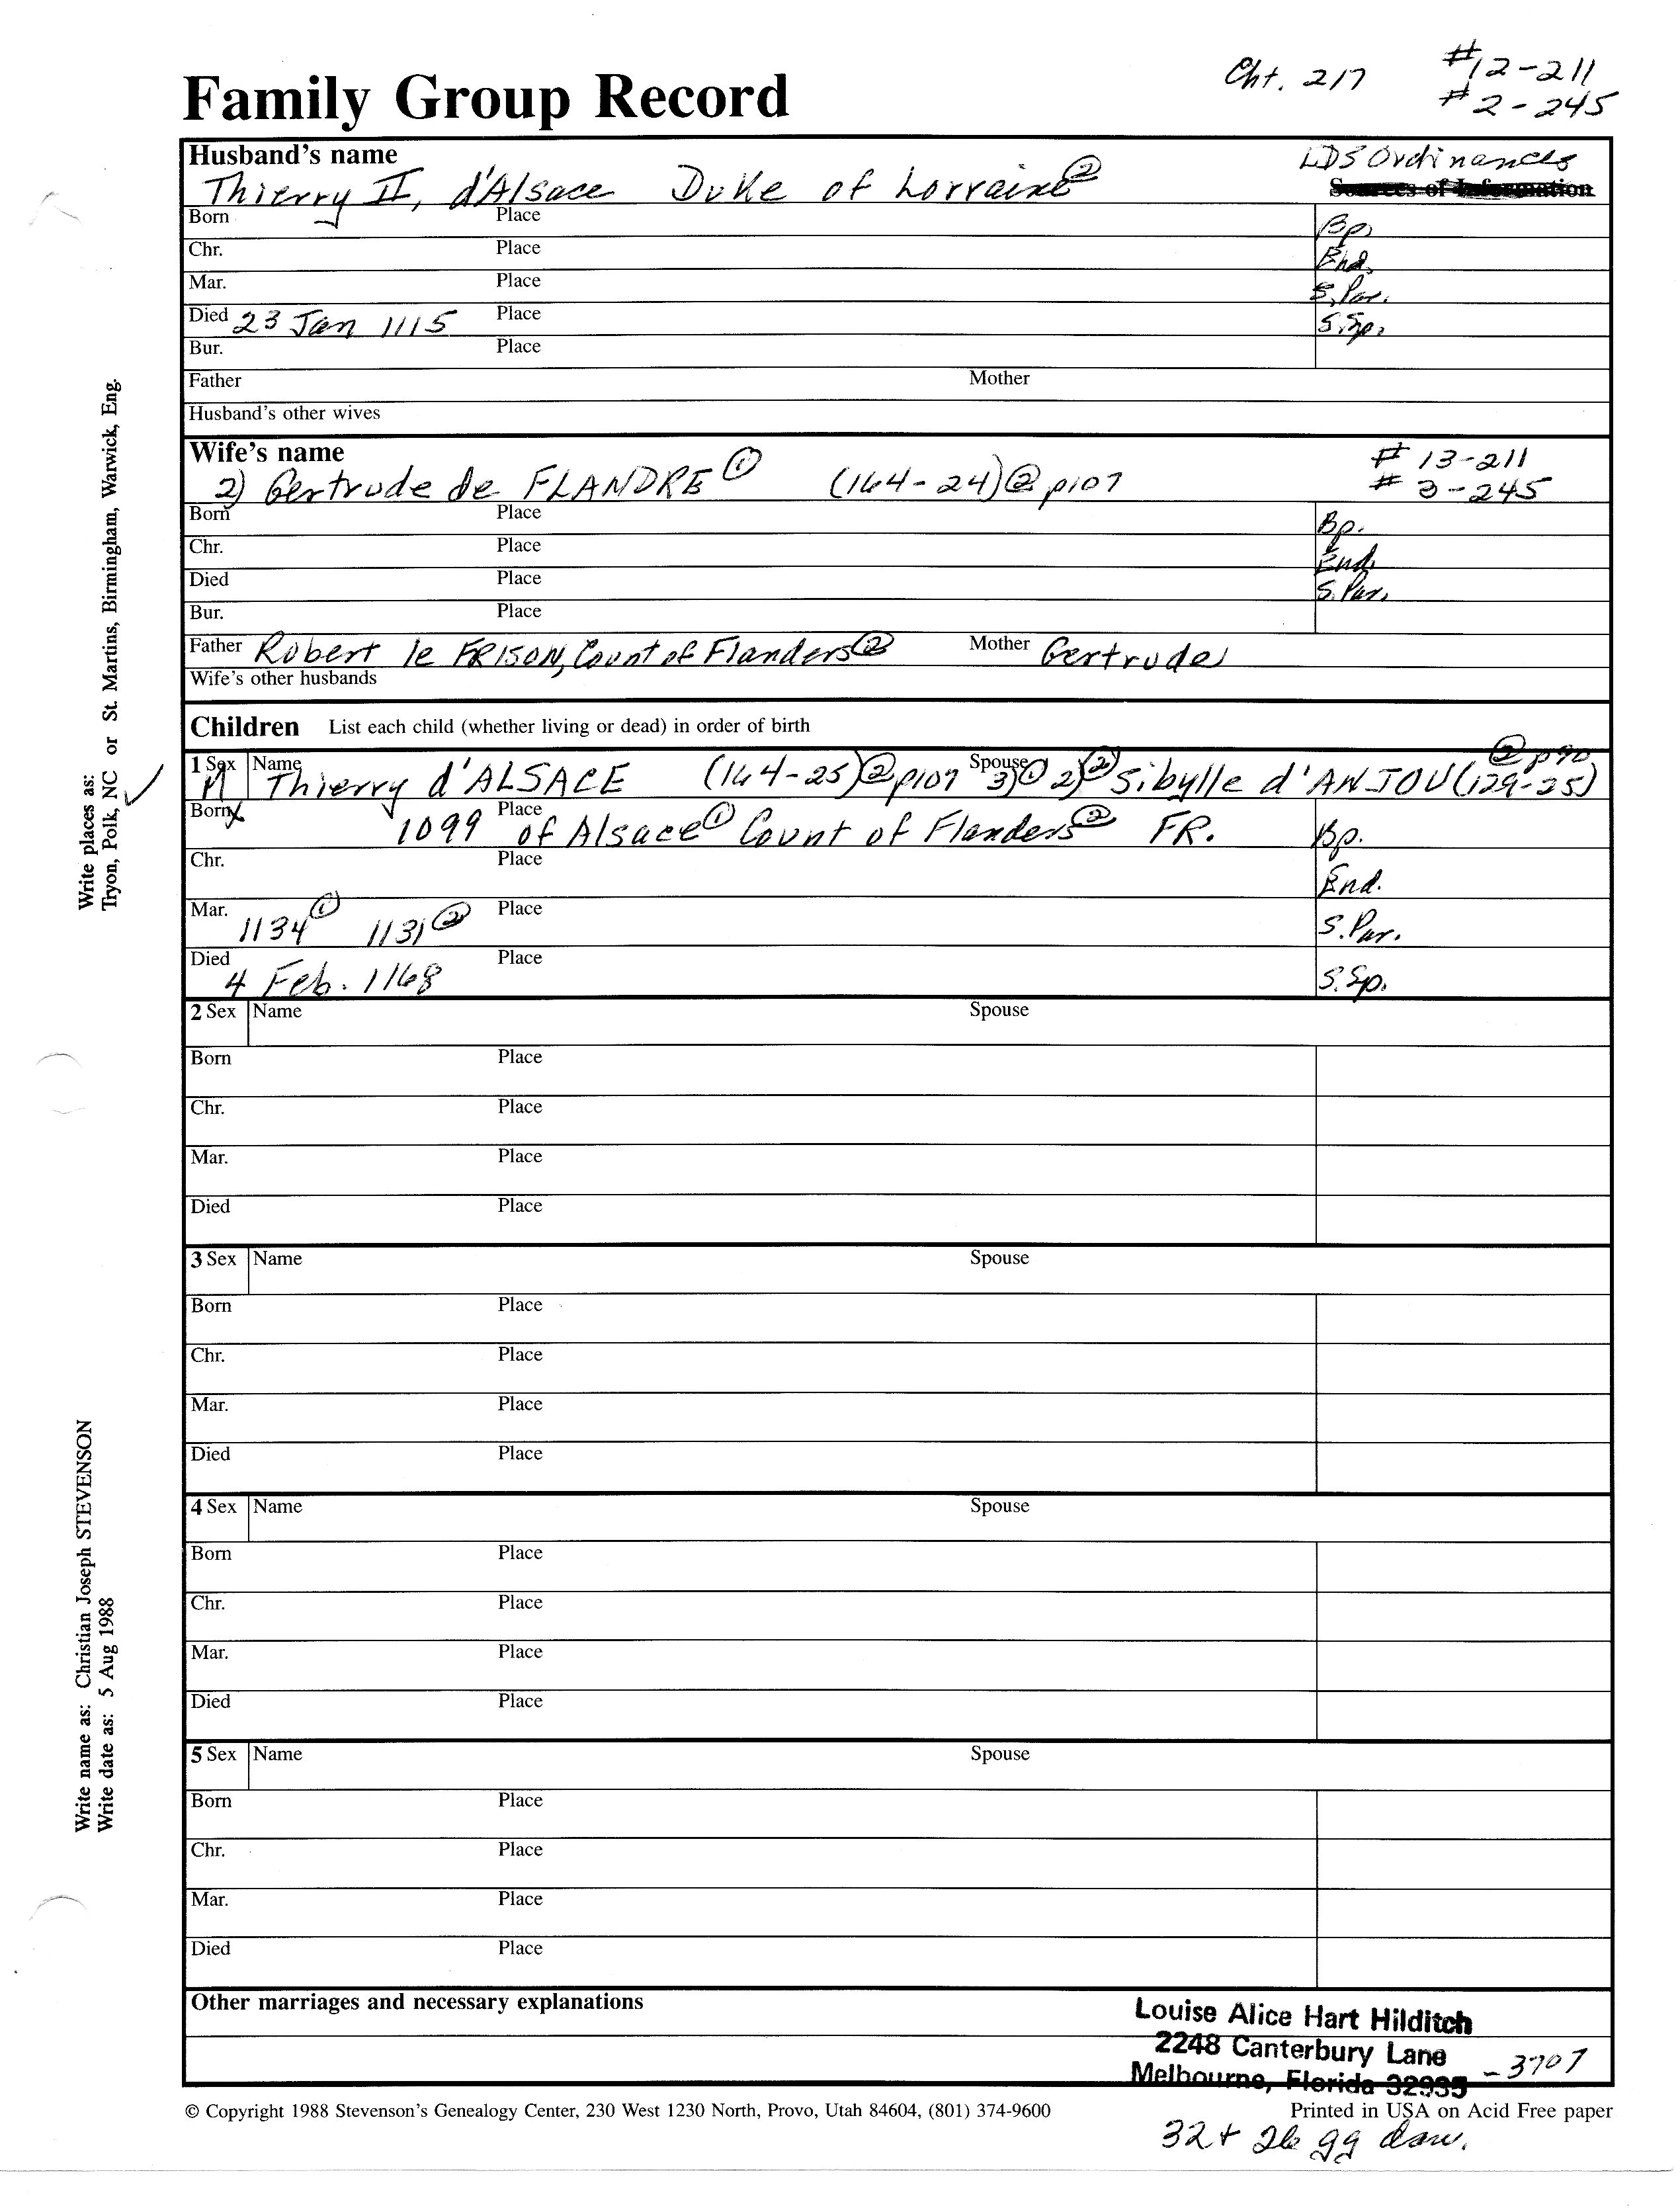 Cht. 217 #12-211
#2-245
Family Group Record
Husband's name LDS Ordinances
Thierry II, d'Alsace Duke of Lorraine② Sources of Information
Born Place Bp.
Chr. Place End.
Mar. Place S. Par.
Died 23 Jan 1115 Place S. Sp.
Bur. Place
Father Mother
Husband's other wives
Wife's name # 13-211
2) Gertrude de FLANDRE① (164-24)② p107 # 3-245
Born Place Bp.
Chr. Place End.
Died Place S. Par.
Bur. Place
Father Robert le FRISON, Count of Flanders② Mother Gertrude
Wife's other husbands
Children List each child (whether living or dead) in order of birth
② p90
1 Sex M Name Thierry d'ALSACE (164-25)② p107 Spouse 3)① 2)② Sibylle d'ANJOU (129-25)
Born X 1099 Place of Alsace① Count of Flanders② FR. Bp.
Chr. Place End.
Mar. 1134① 1131② Place S. Par.
Died 4 Feb. 1168 Place S. Sp.
2 Sex Name Spouse
Born Place
Chr. Place
Mar. Place
Died Place
3 Sex Name Spouse
Born Place
Chr. Place
Mar. Place
Died Place
4 Sex Name Spouse
Born Place
Chr. Place
Mar. Place
Died Place
5 Sex Name Spouse
Born Place
Chr. Place
Mar. Place
Died Place
Other marriages and necessary explanations
Louise Alice Hart Hilditch
2248 Canterbury Lane
Melbourne, Florida 32935 -3707
© Copyright 1988 Stevenson's Genealogy Center, 230 West 1230 North, Provo, Utah 84604, (801) 374-9600 Printed in USA on Acid Free paper
32+ 26 gg dau.
Write places as:
Tryon, Polk, NC or St. Martins, Birmingham, Warwick, Eng.
Write name as: Christian Joseph STEVENSON
Write date as: 5 Aug 1988